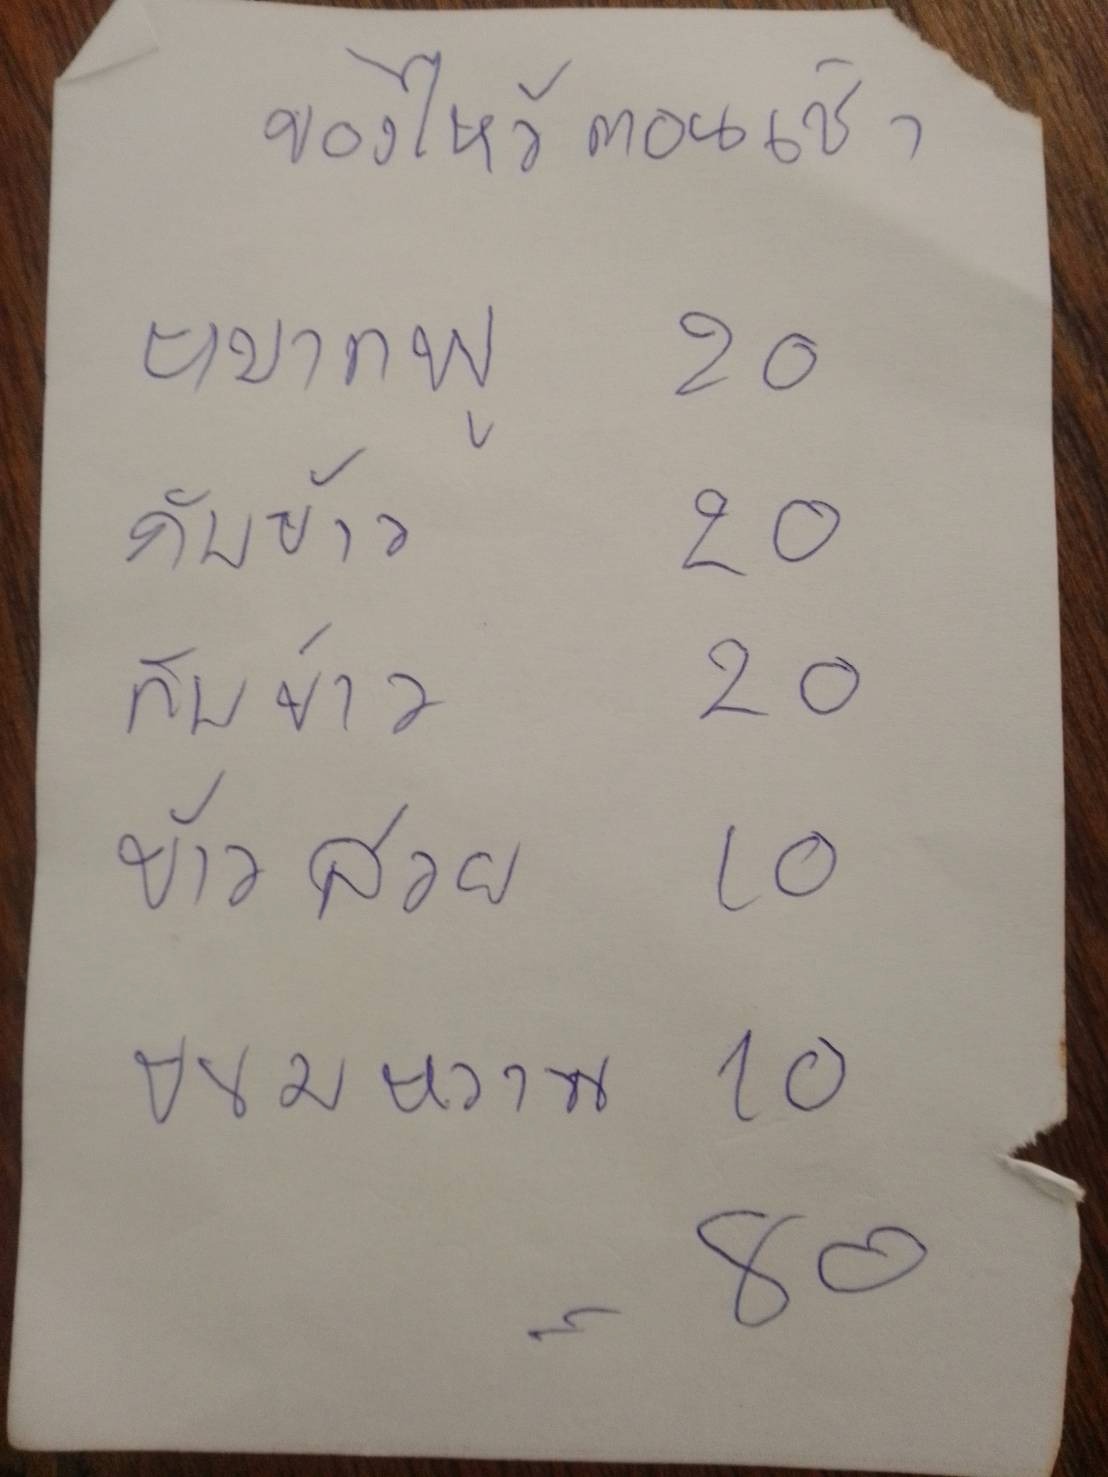 ของไหว้ ตอนเช้า
หมากพู 20
กับข้าว 20
กับข้าว 20
ข้าวสวย 10
ขนมหวาน 10
80